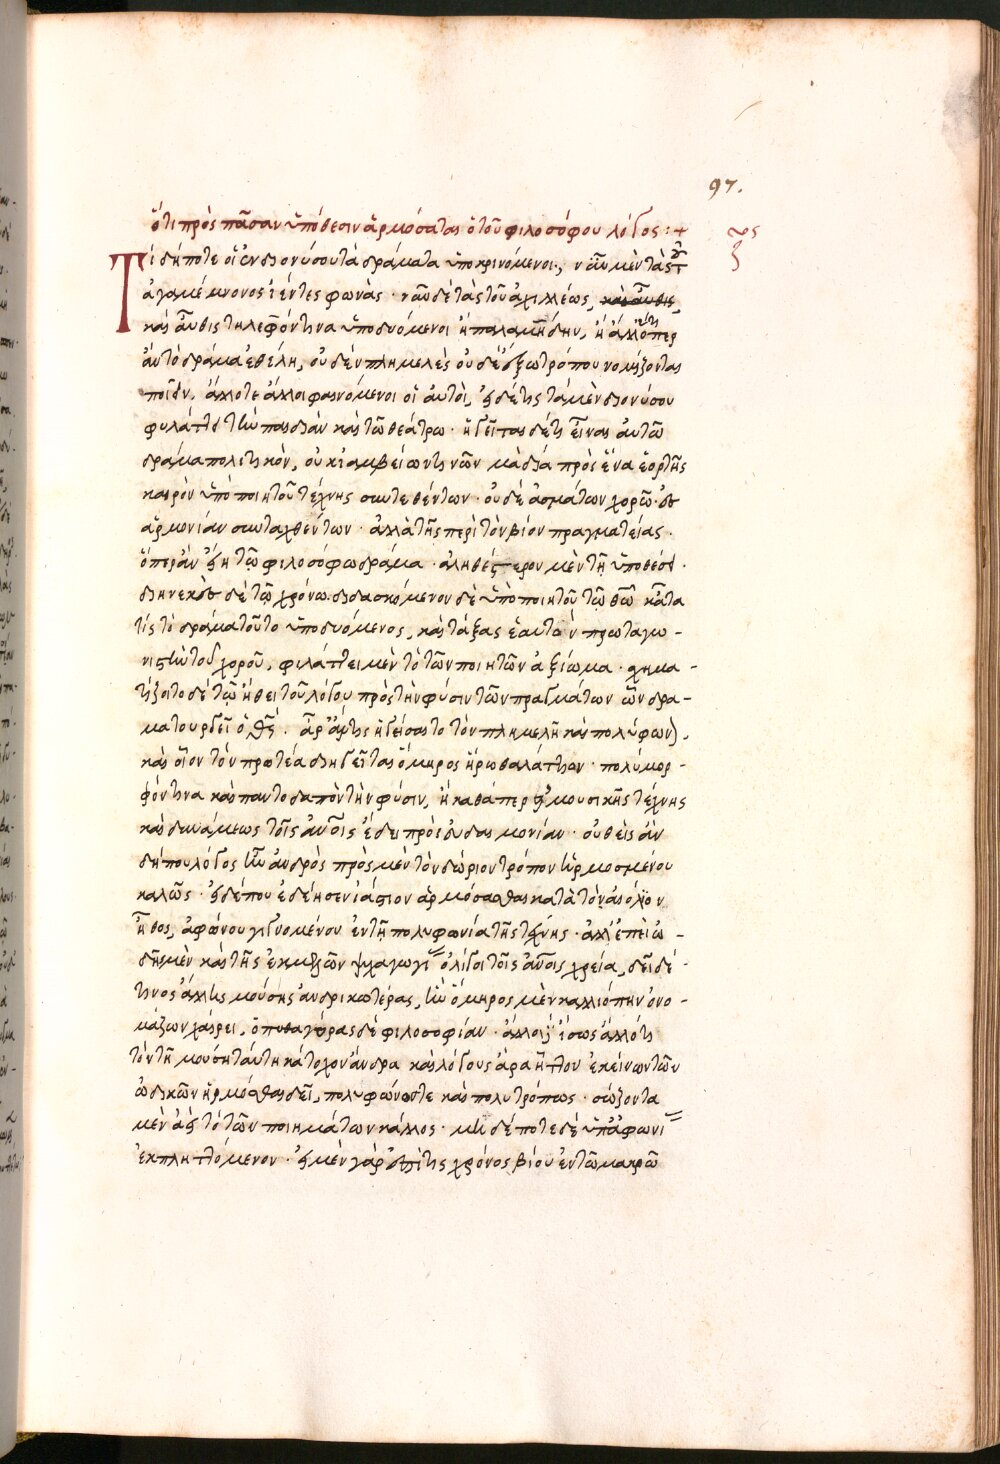 97.
ὅτι πρὸς πᾶσαν ὑπόθεσιν ἁρμόσαται ὁ τοῦ φιλοσόφου λόγος :+
Τί δήποτε οἱ ἐν διονύσου τὰ δράματα ὑποκρινόμενοι, νῦν μὲν τὰς τοῦ
ἀγαμέμνονος ἱέντες φωνὰς · νῦν δὲ τὰς τοῦ ἀχιλλέως, καὶ αὖθις,
καὶ αὖθις τηλεφόν τινα ὑποδυόμενοι ἢ παλαμήδην, ἢ ἄλλό τι ὅπερ
ἂν τὸ δράμα ἐθέλῃ, οὐδὲν πλημελὲς οὐδὲ ἔξω τρόπου νομίζονται
ποιεῖν. ἄλλοτε ἄλλοι φαινόμενοι οἱ ἀυτοὶ, εἰ δέ τις τὰ μὲν διονύσου
φυλάττει τὴν παιδιὰν καὶ τῶ θεάτρω · ἡγεῖται δέ τι εἶναι ἀυτῶ
δράμα πολιτικὸν, οὐκ ἰαμβείων τινῶν μὰ δία πρὸς ἕνα ἑορτῆς
καιρὸν ὑπὸ ποιητοῦ τέχνης συντεθέντων · οὐδὲ ἀσμάτων χορῶ εἰς
ἁρμονίαν συνταχθέντων · ἀλλὰ τῆς περὶ τὸν βίον πραγματείας ·
ὅπερ ἂν εἴη τῶ φιλοσόφω δράμα · ἀληθέστερον μὲν τῇ ὑποθέσει ·
διηνεκὲς δὲ τῶ χρόνω. διδασκόμενον δὲ ὑπὸ ποιητοῦ τῶ θεῶ κᾆτα
τίς τὸ δράμα τοῦτο ὑποδυόμενος, καὶ τάξας ἑαυτὸν πρωταγω-
νιστὴν τοῦ χοροῦ, φυλάττει μὲν τὸ τῶν ποιητῶν ἀξίωμα · χημα-
τίζοιτο δὲ τῶ ἤθει τοῦ λόγου πρὸς τὴν φύσιν τῶν πραγμάτων ὧν δρα-
ματουργεῖ ὁ θεὸς · ἆρ' ἄν τις ἡγείσαιτο τὸν πλημελῆ καὶ πολύφωνον,
καὶ οἷον τὸν πρωτέα διηγεῖται ὅμηρος ἥρω θαλάττιον · πολύμορ-
φόν τινα καὶ παντοδαπὸν τὴν φύσιν, ἢ καθάπερ εἰ μουσικῆς τέχνης
καὶ δυνάμεως τοῖς ἀνθρώποις ἔδει πρὸς ἐυδαιμονίαν · οὐθεὶς ἂν
δήπου λόγος ἦν ἀνδρὸς πρὸς μὲν τὸν δώριον τρόπον ἡρμοσμένου
καλῶς · εἰ δέ που ἐδέησεν ἰάστιον ἁρμόσασθαι κατὰ τὸν ἀιόλιον
ἦθος, ἀφώνου γιγνομένου ἐν τῇ πολυφωνία τῆς τέχνης · ἀλλ' ἐπεὶ ὠ-
δῆς μὲν καὶ τῆς ἐκ μελῶν ψυχαγωγίας ὀλίγοι τοῖς ἀνθρώποις χρεία, δεῖ δέ
τινος ἄλλης μούσης ἀνδρικωτέρας, ἣν ὅμηρος μὲν καλλιόπην ὀνο-
μάζων χαίρει, ὁ πυθαγόρας δὲ φιλοσοφίαν · ἄλλος ἴσως ἄλλό τι
τὸν τῇ μούσῃ ταύτῃ κάτοχον ἄνδρα καὶ λόγους ἆρα ἧττον ἐκείνων τῶν
ὠδικῶν ἡρμόσθαι δεῖ, πολυφώνως τε καὶ πολυτρόπως · σώζοντα
μὲν ἀεὶ τὸ τῶν ποιημάτων κάλλος · μὴ δέποτε δὲ ὑπ' ἀφωνίας
ἐκπληττόμενον · εἰ μὲν γὰρ ἐστί τις χρόνος βίου ἐν τῶ μακρῶ